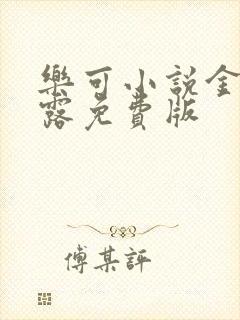 樂可小說金
露免費版
傅某評